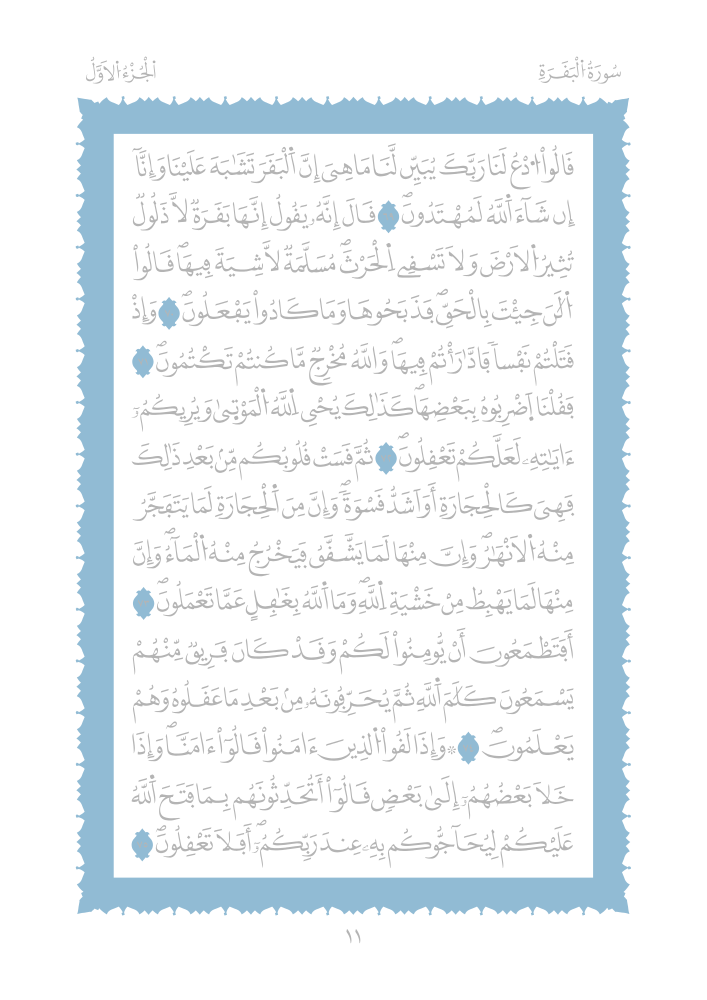 سُورَةُ اُ۬لْبَقَرَةِ
اَ۬لْجُزْءُ اُ۬لَاوَّلُ
قَالُواْ اُ۟دْعُ لَنَا رَبَّكَ يُبَيِّن لَّنَا مَا هِيَ إِنَّ اَ۬لْبَقَرَ تَشَٰبَهَ عَلَيْنَا وَإِنَّآ
إِن شَآءَ اَ۬للَّهُ لَمُهْتَدُونَۖ قَالَ إِنَّهُۥ يَقُولُ إِنَّهَا بَقَرَةٌ لَّا ذَلُولٌ
تُثِيرُ اُ۬لَارْضَ وَلَا تَسْقِے اِ۬لْحَرْثَۖ مُسَلَّمَةٌ لَّا شِيَةَ فِيهَاۖ قَالُواْ
اُ۬لَٰنَ جِئْتَ بِالْحَقِّۖ فَذَبَحُوهَا وَمَا كَادُواْ يَفْعَلُونَۖ وَإِذْ
قَتَلْتُمْ نَفْساٗ فَادَّٰرَأْتُمْ فِيهَاۖ وَاللَّهُ مُخْرِجٌ مَّا كُنتُمْ تَكْتُمُونَۖ
فَقُلْنَا اَ۪ضْرِبُوهُ بِبَعْضِهَاۖ كَذَٰلِكَ يُحْيِ اِ۬للَّهُ اُ۬لْمَوْت۪يٰ وَيُرِيكُمُۥٓ
ءَايَٰتِهِۦ لَعَلَّكُمْ تَعْقِلُونَۖ ثُمَّ قَسَتْ قُلُوبُكُم مِّنۢ بَعْدِ ذَٰلِكَ
فَهِيَ كَالْحِجَارَةِ أَوَ اَشَدُّ قَسْوَةٗۖ وَإِنَّ مِنَ اَ۬لْحِجَارَةِ لَمَا يَتَفَجَّرُ
مِنْهُ اُ۬لَانْهَٰرُۖ وَإِنَّ مِنْهَا لَمَا يَشَّقَّقُ فَيَخْرُجُ مِنْهُ اُ۬لْمَآءُۖ وَإِنَّ
مِنْهَا لَمَا يَهْبِطُ مِنْ خَشْيَةِ اِ۬للَّهِۖ وَمَا اَ۬للَّهُ بِغَٰفِلٍ عَمَّا تَعْمَلُونَۖ
أَفَتَطْمَعُونَ أَنْ يُّومِنُواْ لَكُمْ وَقَدْ كَانَ فَرِيقٌ مِّنْهُمْ
يَسْمَعُونَ كَلَٰمَ اَ۬للَّهِ ثُمَّ يُحَرِّفُونَهُۥ مِنۢ بَعْدِ مَا عَقَلُوهُ وَهُمْ
يَعْلَمُونَۖ ۞ وَإِذَا لَقُواْ اُ۬لذِينَ ءَامَنُواْ قَالُوٓاْ ءَامَنَّاۖ وَإِذَا
خَلَا بَعْضُهُمُۥٓ إِلَىٰ بَعْضٖ قَالُوٓاْ أَتُحَدِّثُونَهُم بِمَا فَتَحَ اَ۬للَّهُ
عَلَيْكُمْ لِيُحَآجُّوكُم بِهِۦ عِندَ رَبِّكُمُۥٓۖ أَفَلَا تَعْقِلُونَۖ
١١